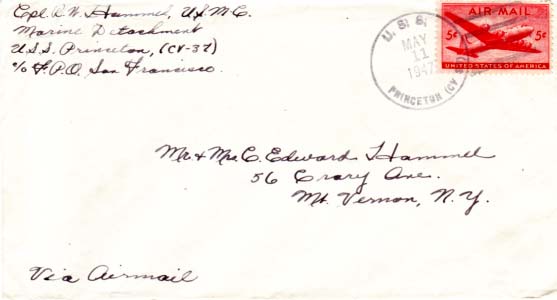 Cpl. R. W. Hammel, U.S.M.C.
Marine Detachment
U.S.S. Princeton, (CV-37)
c/o F.P.O. San Francisco.
U. S. S.
MAY
11
1947
PRINCETON (CV
AIR MAIL
5¢ 5¢
UNITED STATES OF AMERICA
Mr. & Mrs. C. Edward Hammel
56 Crary Ave.
Mt. Vernon, N.Y.
Via Airmail